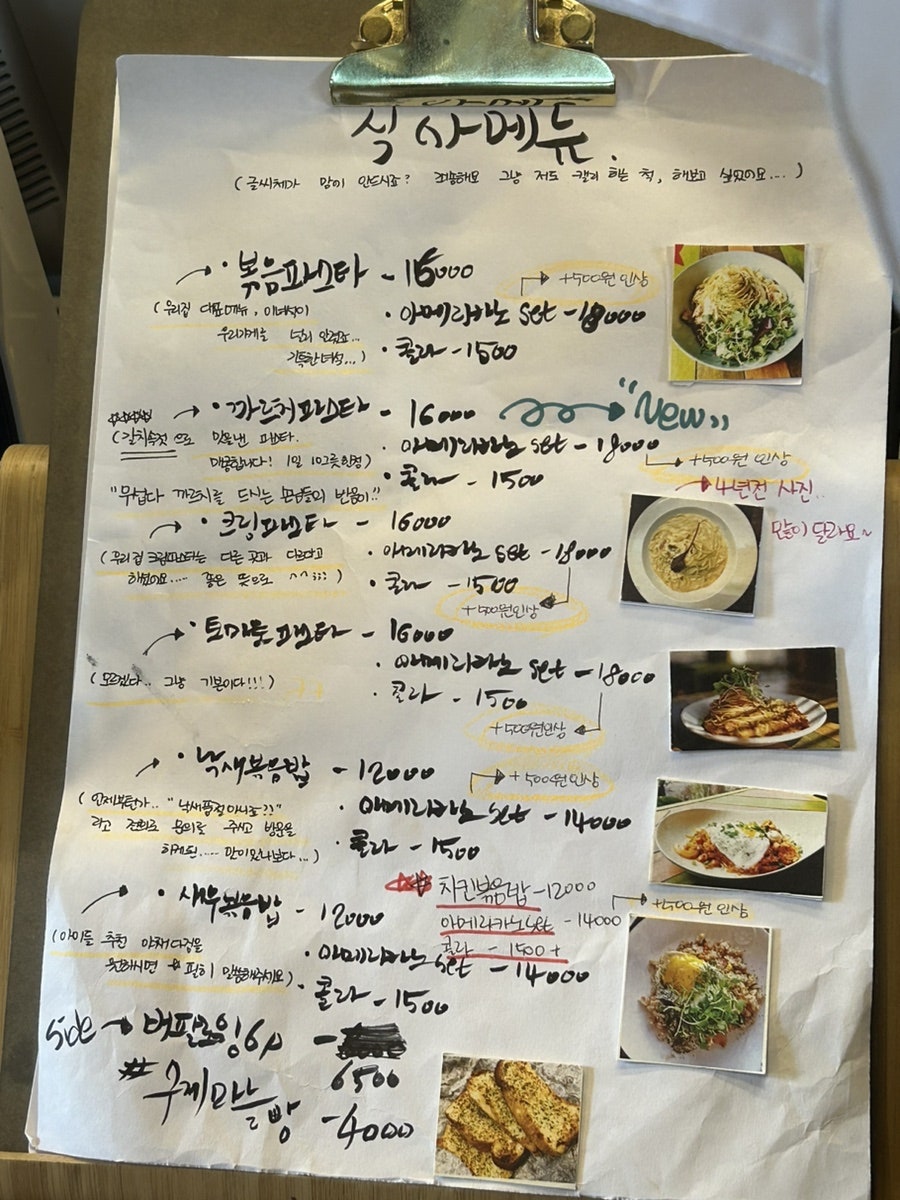 식사메뉴.
(글씨체가 맘에 안드시죠? 죄송해요 그냥 저도 캘리 하는 척, 해보고 싶었어요....)
· 볶음파스타 - 16000
+500원 인상
(우리집 대표메뉴, 이녀석이
우리가게를
기특한녀석...)
· 아메리카노 set - 18000
· 콜라 - 1500
· 까르처파스타 - 16000
"New"
(갈치속젓으로 맛을낸 파스타.
매콤합니다! 1일 10그릇한정)
· 아메리카노 set - 18000
+500원 인상
· 콜라 - 1500
"무섭다 까르처를 드시는 손님들의 반응이.."
4년전 사진..
많이 달라요~
· 크림파스타 - 16000
(우리집 크림파스타는 다른 곳과 다르다고
하셨어요.... 좋은 뜻으로 ^^;;;)
· 아메리카노 set - 18000
· 콜라 - 1500
+500원인상
· 토마토파스타 - 16000
(모르겠다.. 그냥 기본이다!!!)
· 아메리카노 set - 18000
· 콜라 - 1500
+500원인상
· 낙새볶음밥 - 12000
+500원인상
(언제부턴가.. "낙새품절아니죠??"
라고 전화로 문의를 주시고 방문을
하게된.... 맛이있나보다...)
· 아메리카노 set - 14000
· 콜라 - 1500
· 새우볶음밥 - 12000
(아이들 추천 야채다짐을
원하시면 꼭 필히 말씀해주세요)
· 아메리카노 set - 14000
· 콜라 - 1500
치킨볶음밥 - 12000
아메리카노set - 14000
+500원 인상
콜라 - 1500 +
Side → 버팔로윙6p -
6500
수제마늘빵 - 4000